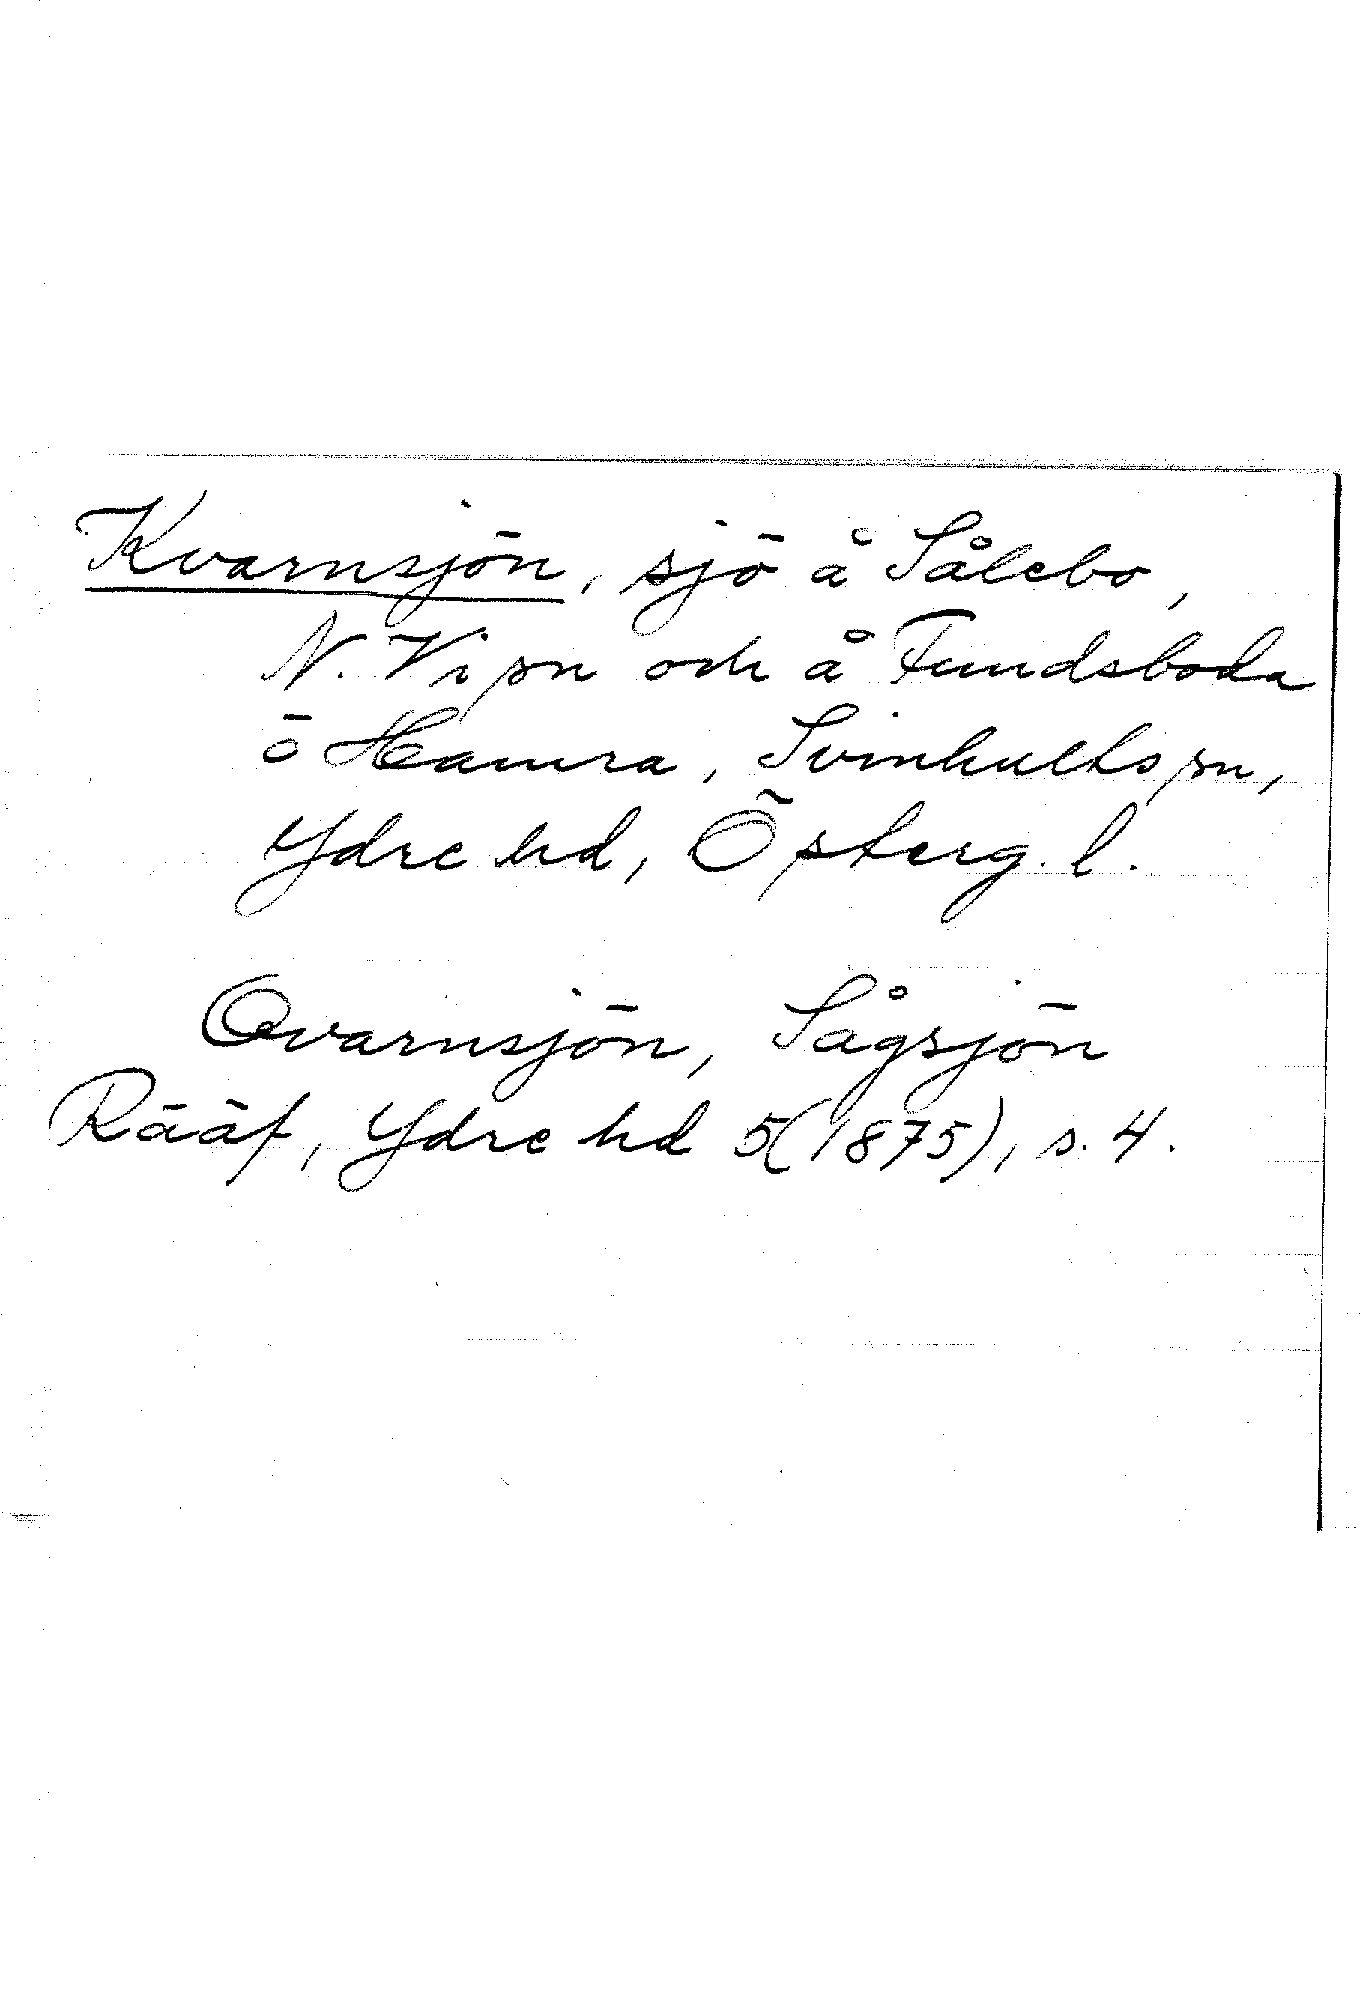 Kvarnsjön, sjö å Sålebo,
N. Vi sn och å Fundsboda
ö Hamra, Svinhults sn,
Ydre hd, Österg. l.
Qvarnsjön, Sågsjön
Rääf, Ydre hd 5(1875), s. 4.